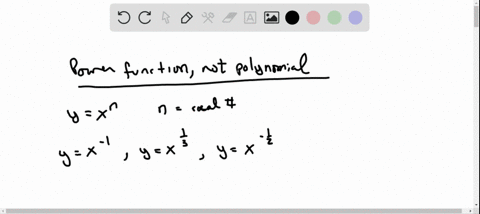 Power function, not polynomial
y = x^n   n = real #
y = x^{-1} , y = x^{1/3} , y = x^{-1/2}